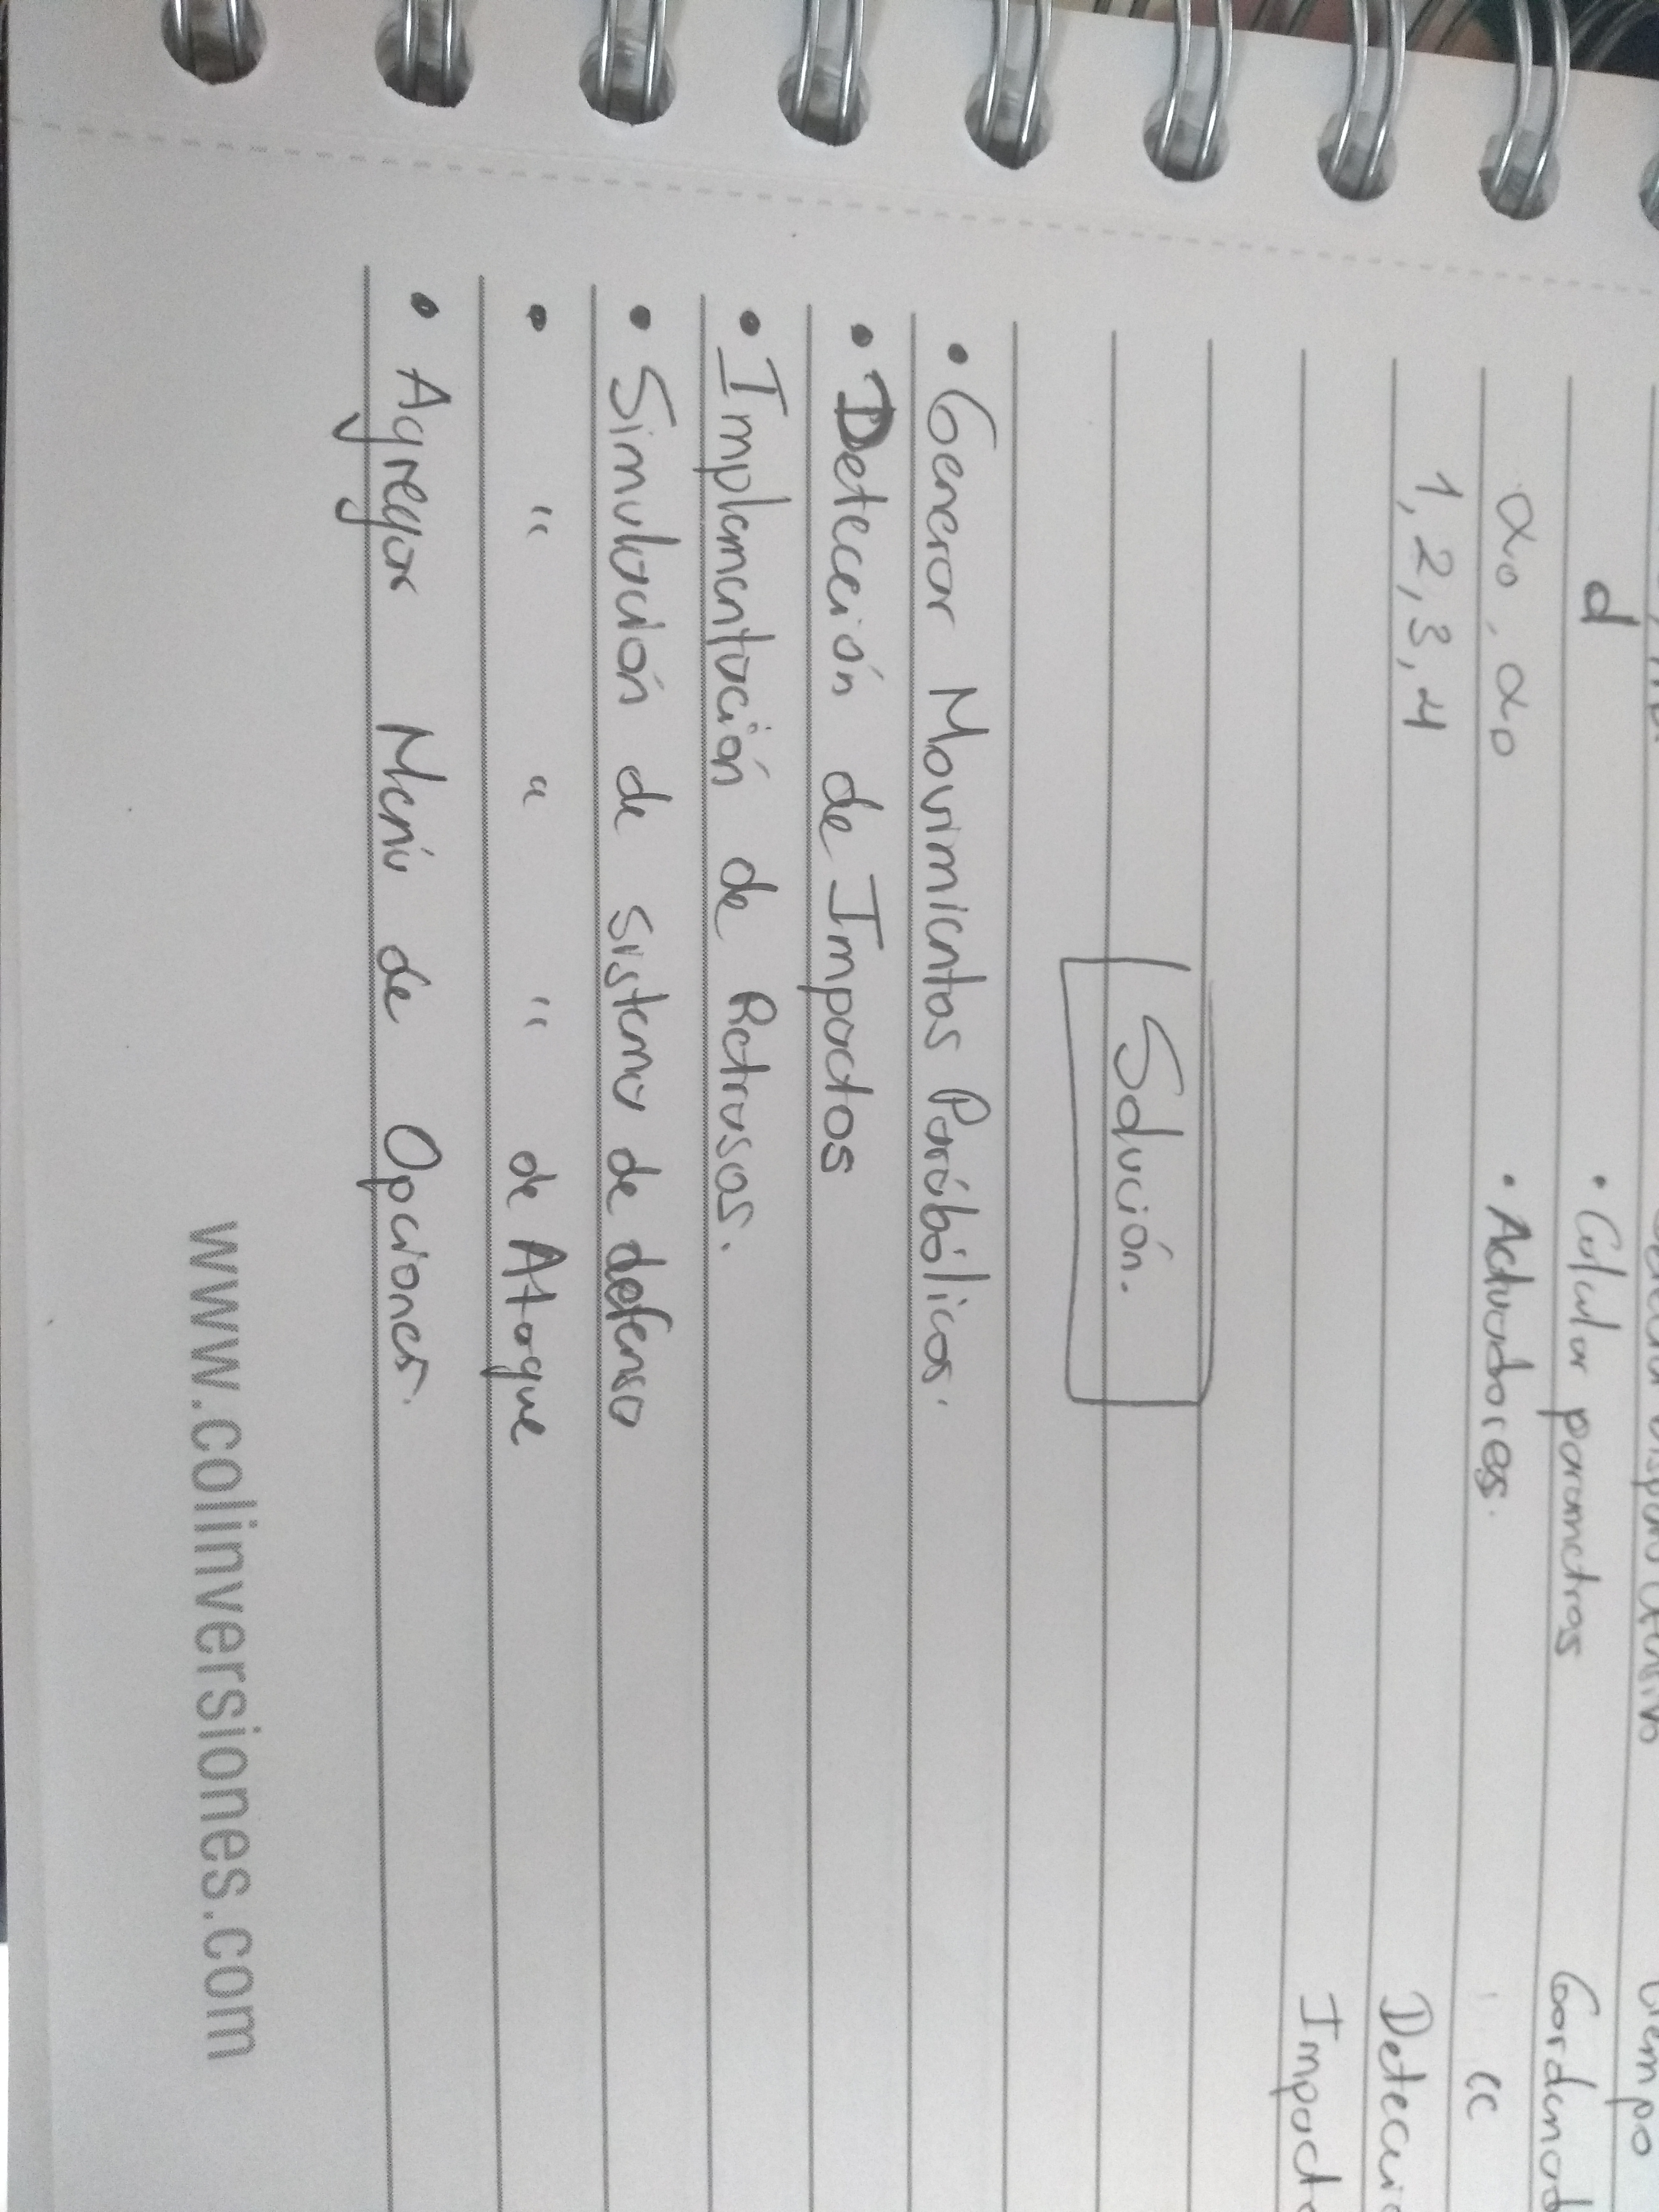 d
• Calcular parametros
α₀, α₀
• Actuadores.
"
1, 2, 3, 4
Solución.
• Generar Movimientos Parábólicos.
• Detección de Impactos
• Implementación de Retrasos.
• Simulación de sistema de defensa
• " " " de Ataque
• Agregar Menú de Opciones.
www.colinversiones.com